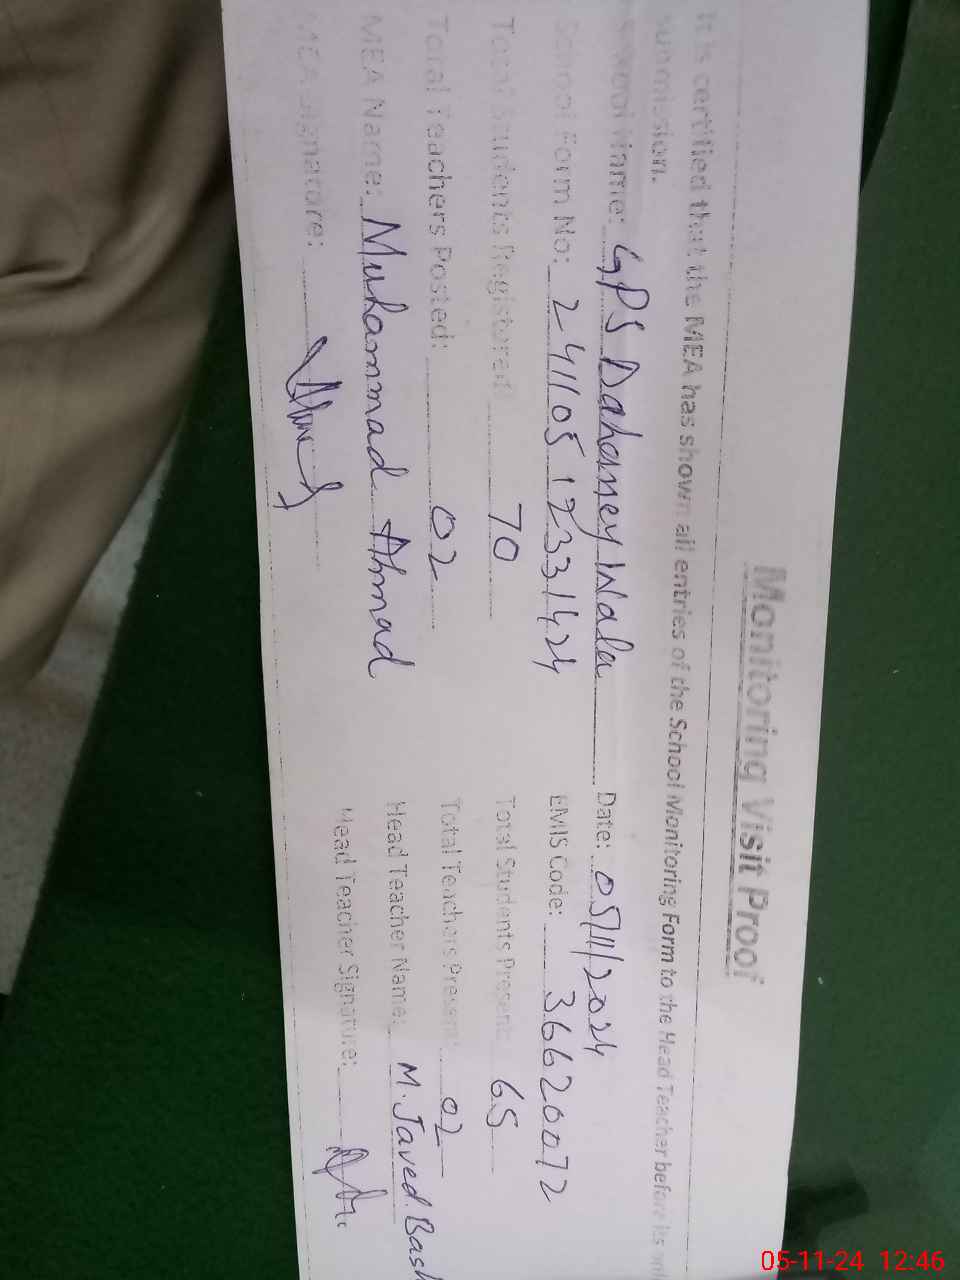 Monitoring Visit Proof
It is certified that the MEA has shown all entries of the School Monitoring Form to the Head Teacher before its
submission.
School Name: GPS Dahamey Wala Date: 05/11/2024
School Form No: 241105 1233 1424 EMIS Code: 36620072
Total Students Registered 70 Total Students Present: 65
Total Teachers Posted: 02 Total Teachers Present: 02
MEA Name: Muhammad Ahmad Head Teacher Name: M. Javed. Bash
MEA Signature: Head Teacher Signature:
05-11-24 12:46